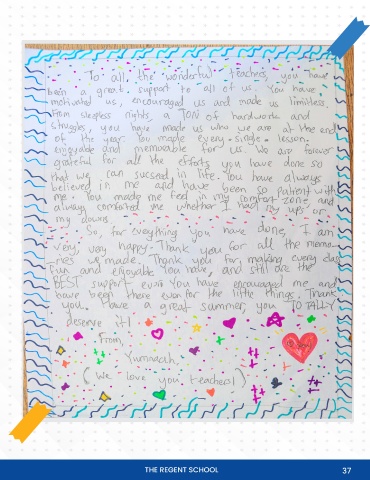 To all the wonderful teachers, you have
been a great support to all of us. You have
motivated us, encouraged us and made us limitless.
From sleepless nights, a TON of hardwork and
struggles, you have made us who we are at the end
of the year. You made every single lesson
enjoyable and memorable for us. We are forever
grateful for all the efforts you have done so
that we can succeed in life. You have always
believed in me and have been so patient with
me. You made me feel in my comfort zone and
always comforted me whether I had my ups or
my downs.
So, for everything you have done, I am
very, very happy. Thank you for all the memo-
ries we made. Thank you for making every day
fun and enjoyable. You have and still are the
BEST support ever. You have encouraged me and
have been there even for the little things. Thank
you. Have a great summer, you TOTALLY
deserve it!
From,
(We love you teachers!)
THE REGENT SCHOOL
37